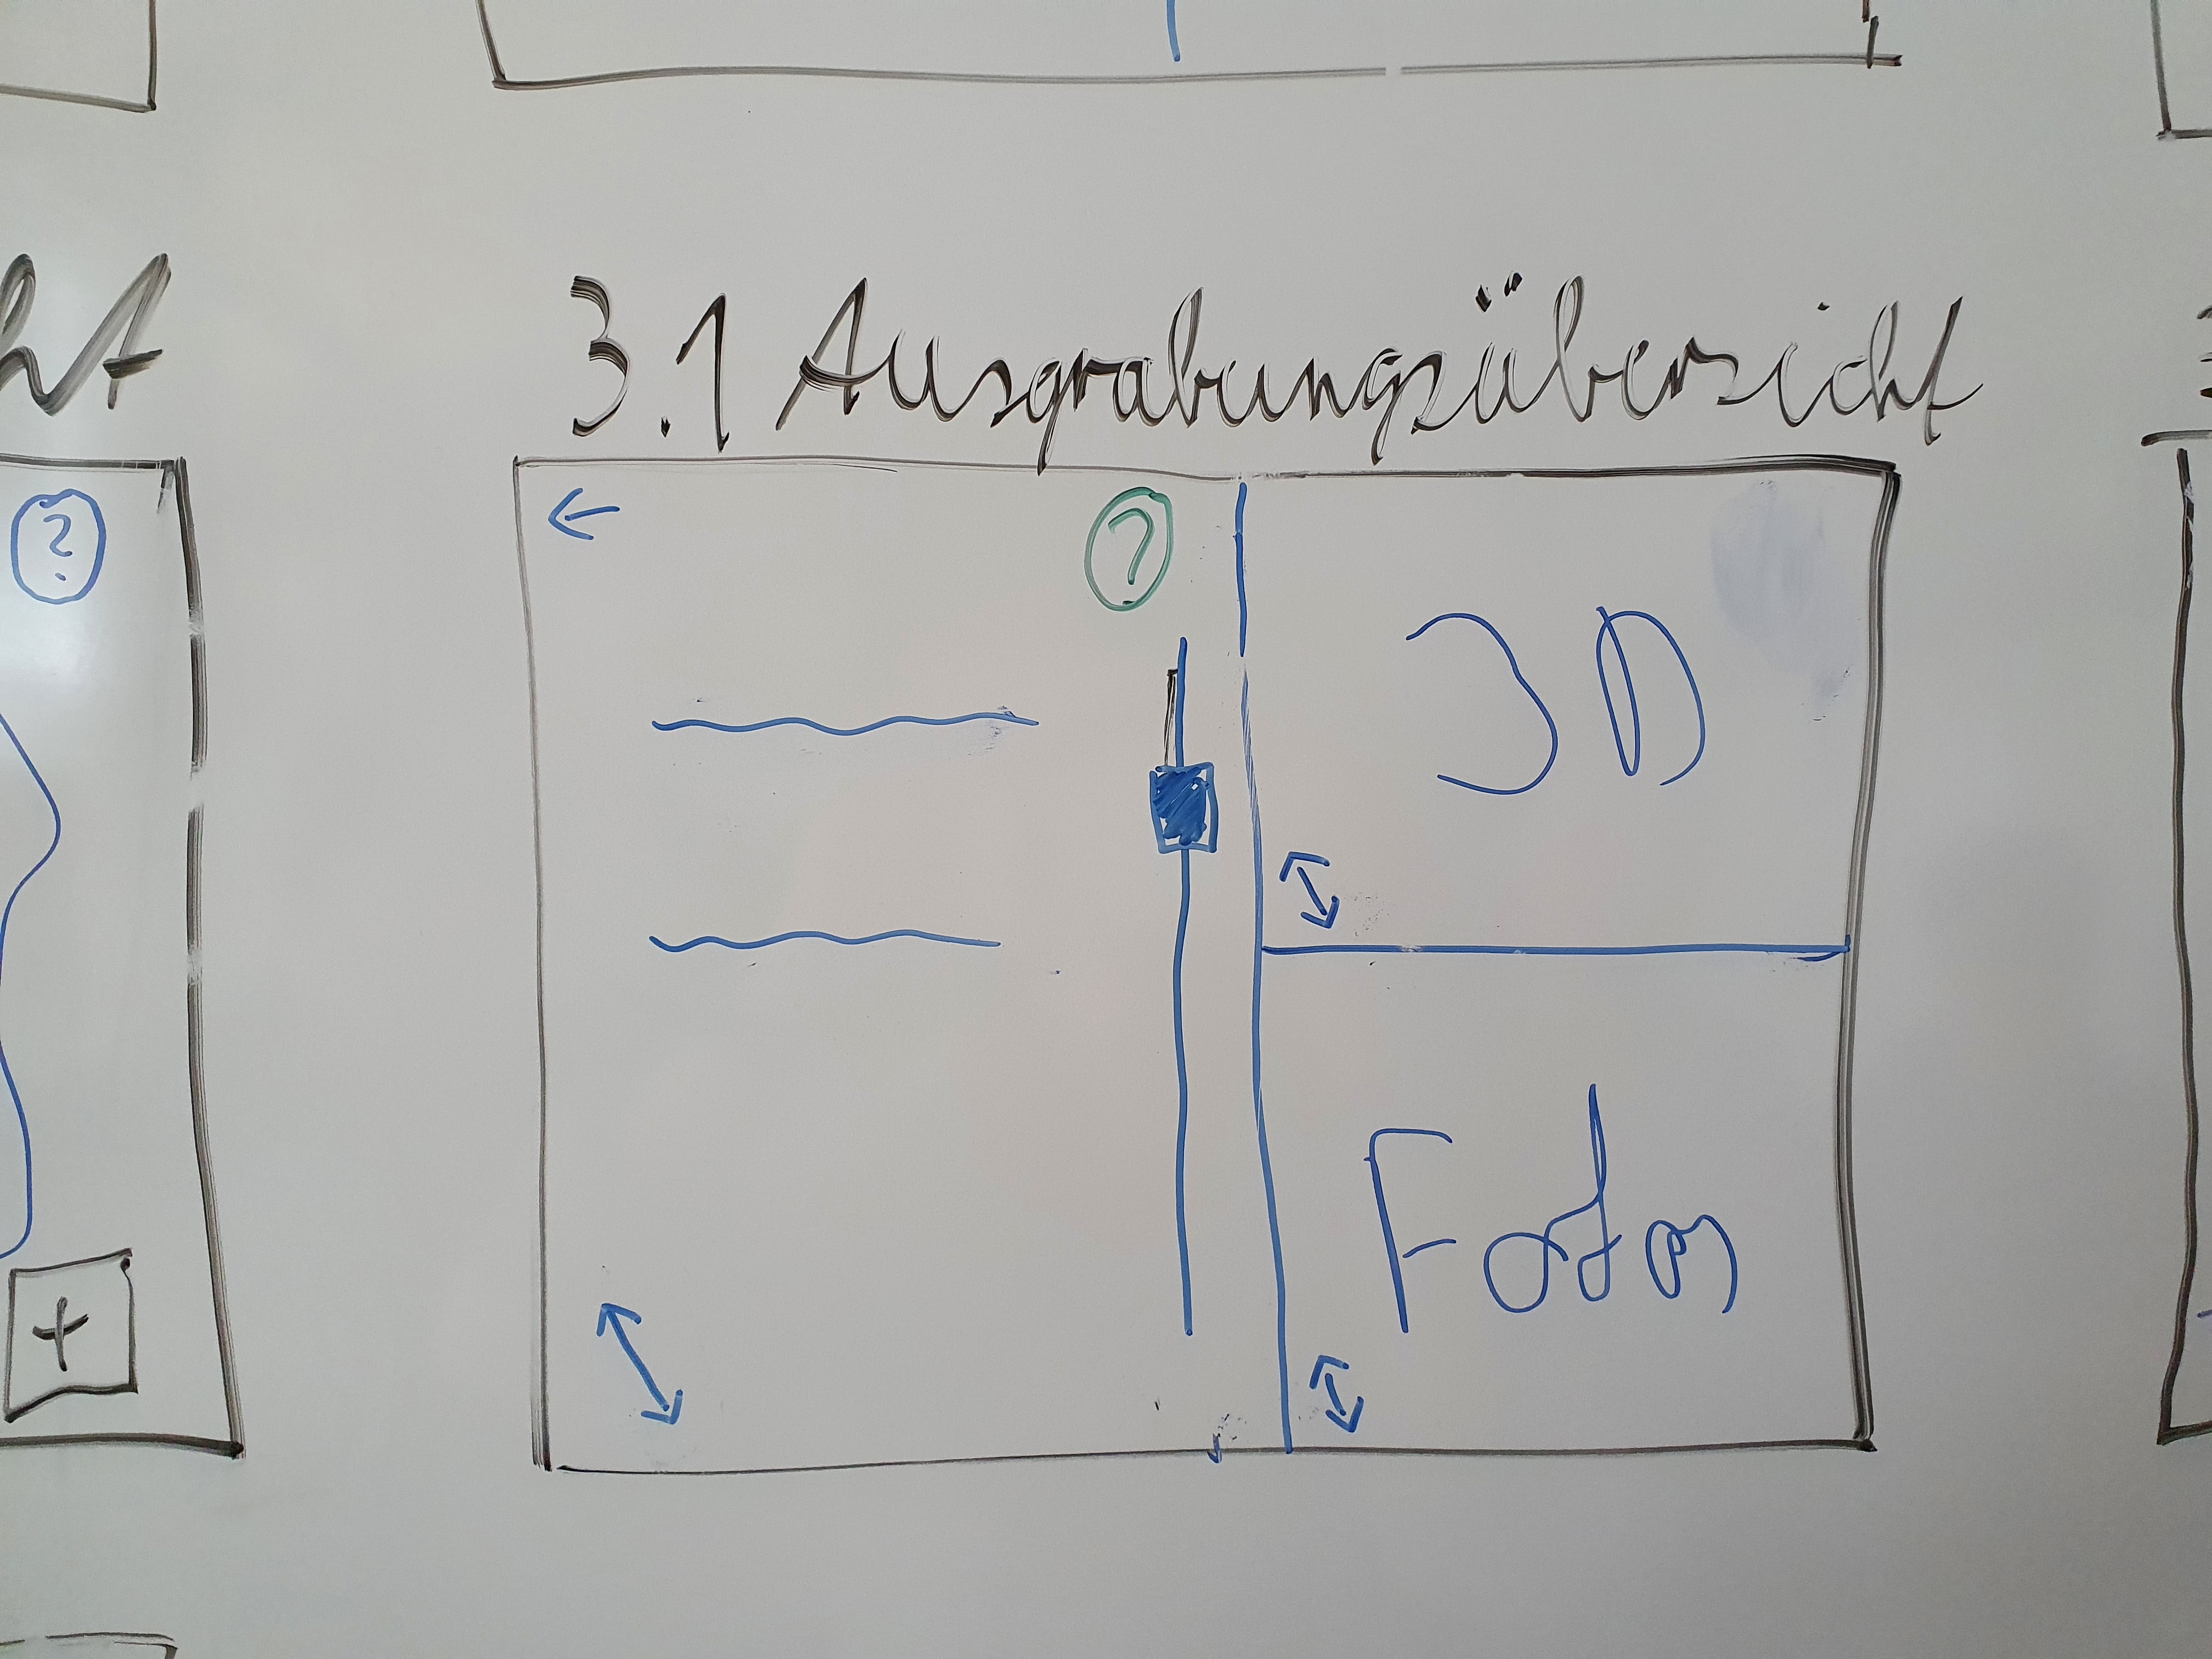 3.1 Ausgrabungsübersicht
ht
?
?
3D
Fotos
+